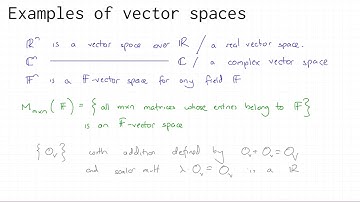 Examples of vector spaces
ℝⁿ is a vector space over ℝ / a real vector space.
ℂⁿ ———————— ℂ / a complex vector space
𝔽ⁿ is a 𝔽-vector space for any field 𝔽
Mₘₓₙ(𝔽) = { all mxn matrices whose entries belong to 𝔽 }
is an 𝔽-vector space
{ Oᵥ } with addition defined by Oᵥ + Oᵥ = Oᵥ
and scalar mult λ Oᵥ = Oᵥ is a ℝ